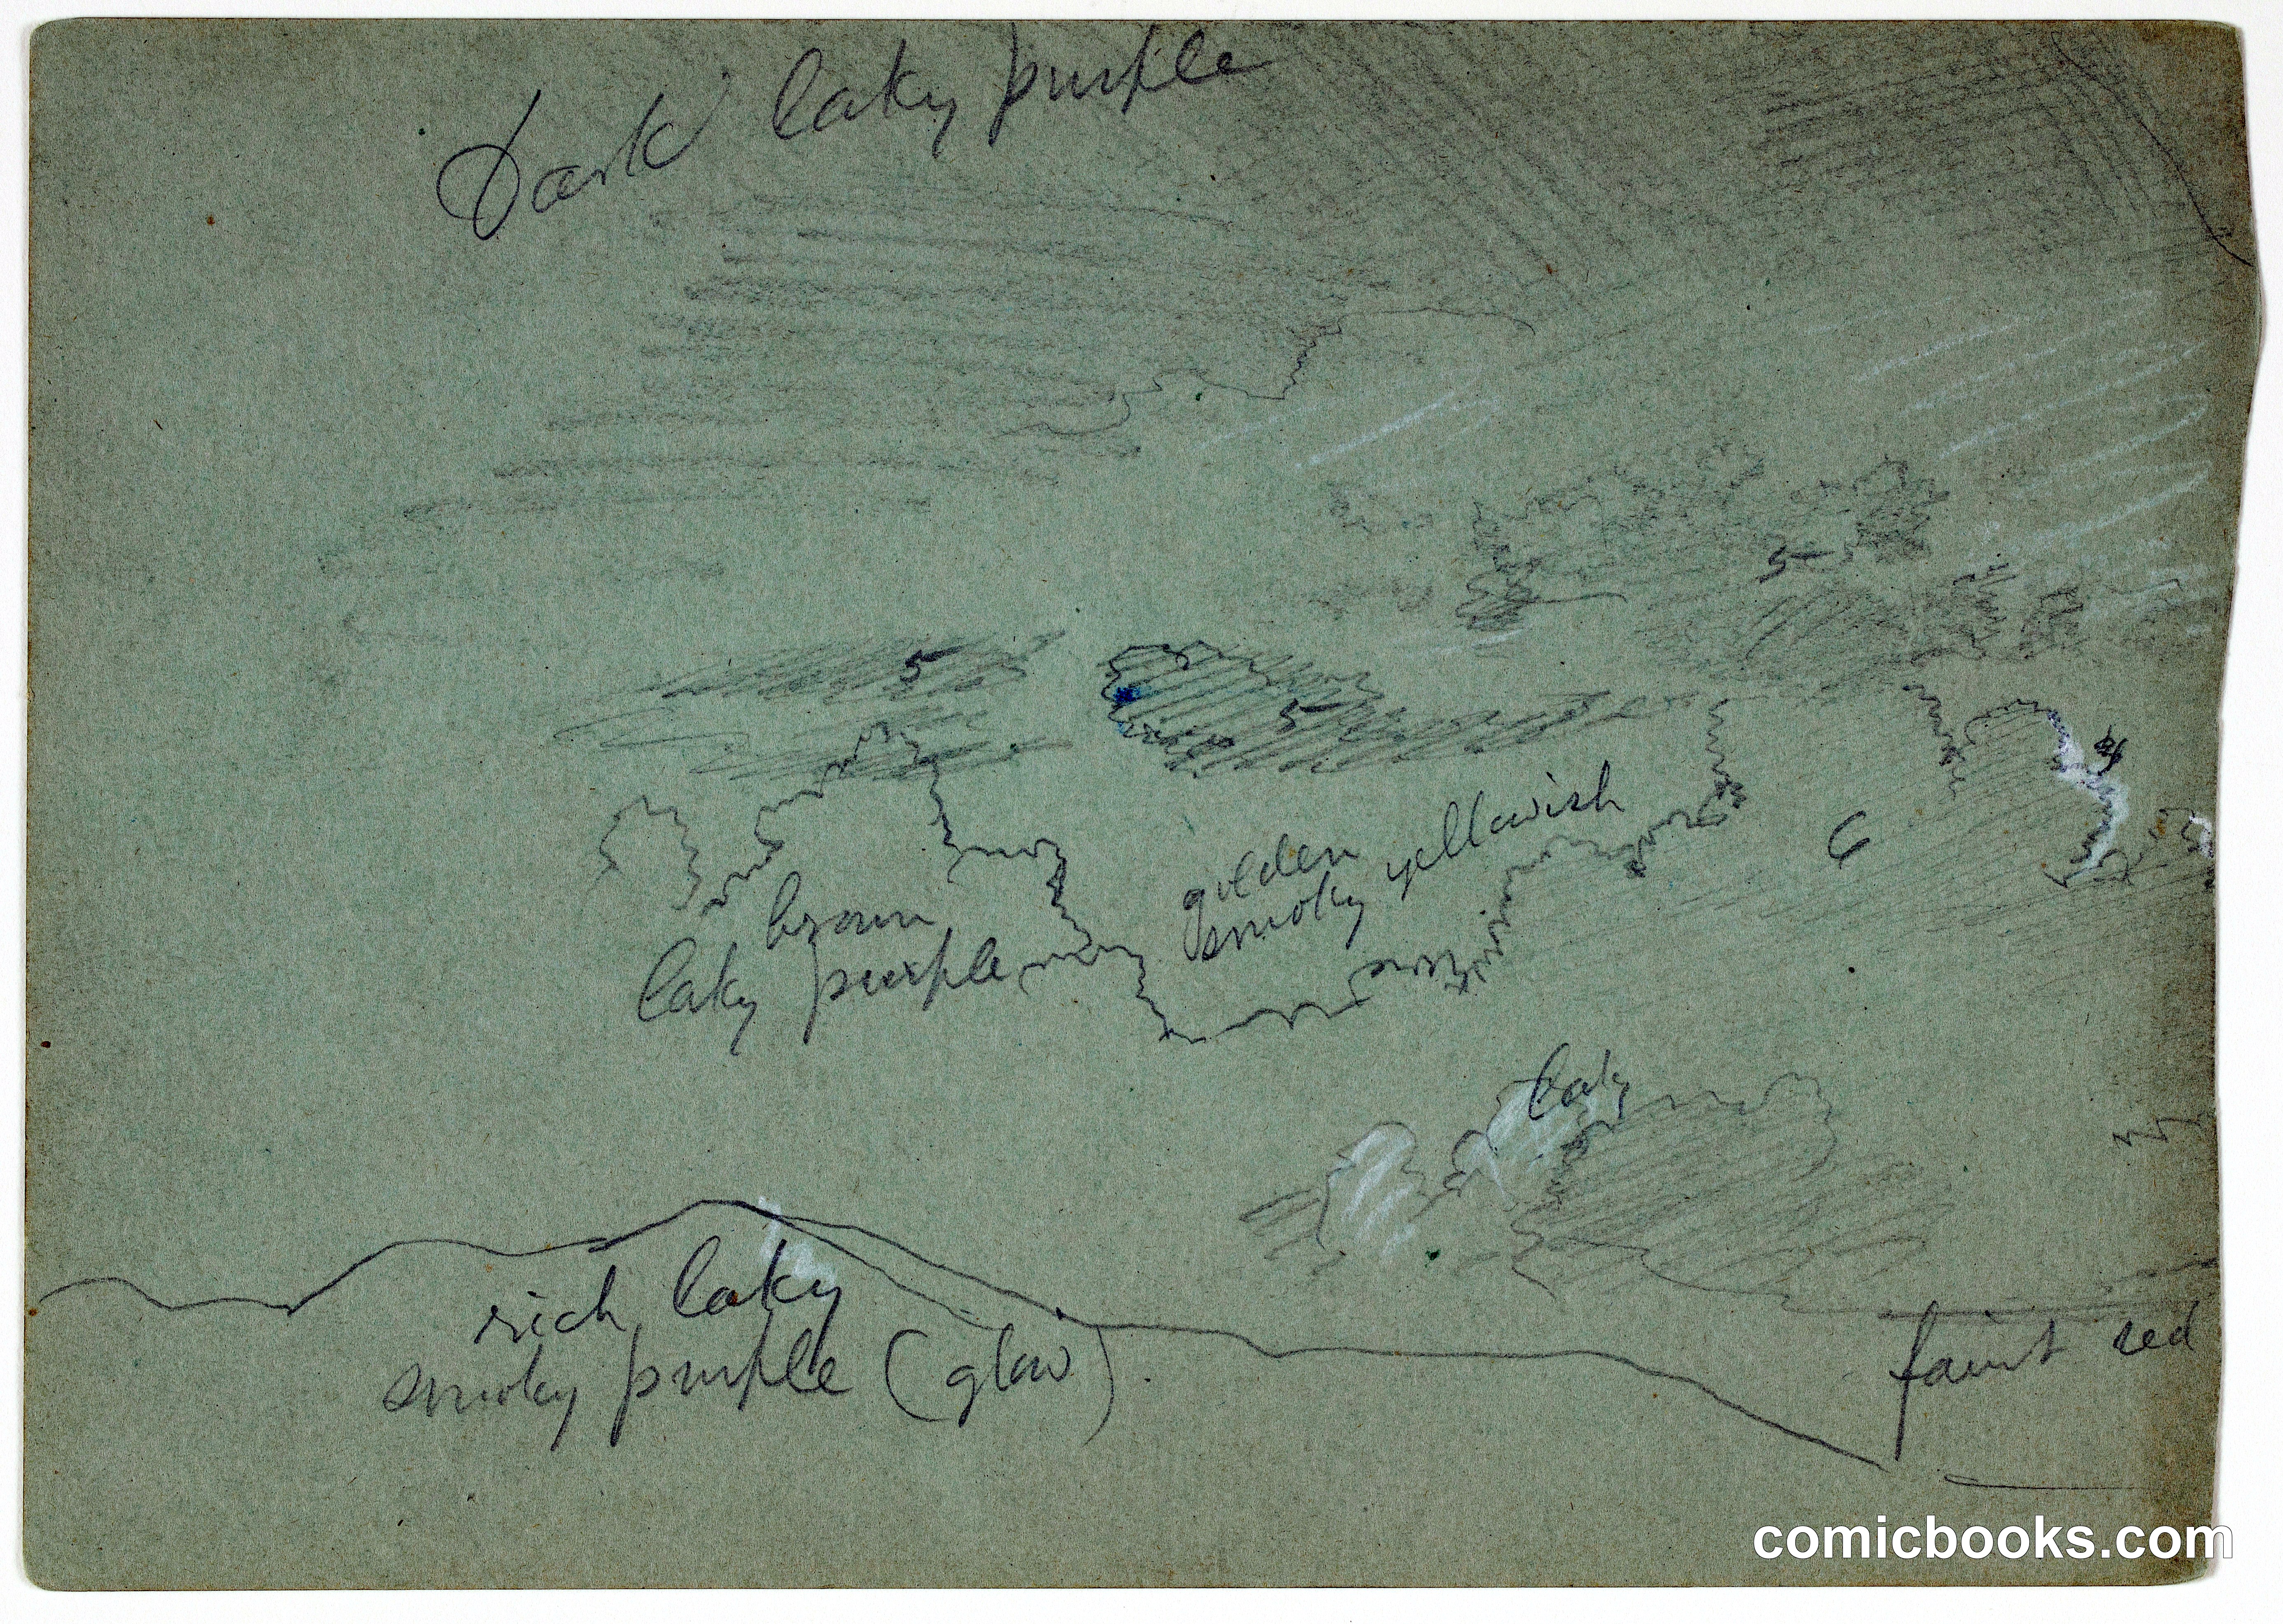 Dark laky purple
5
5
5
4
golden
smoky yellowish
6
brown
laky purple
laky
rich laky
smoky purple (glow)
faint red
comicbooks.com